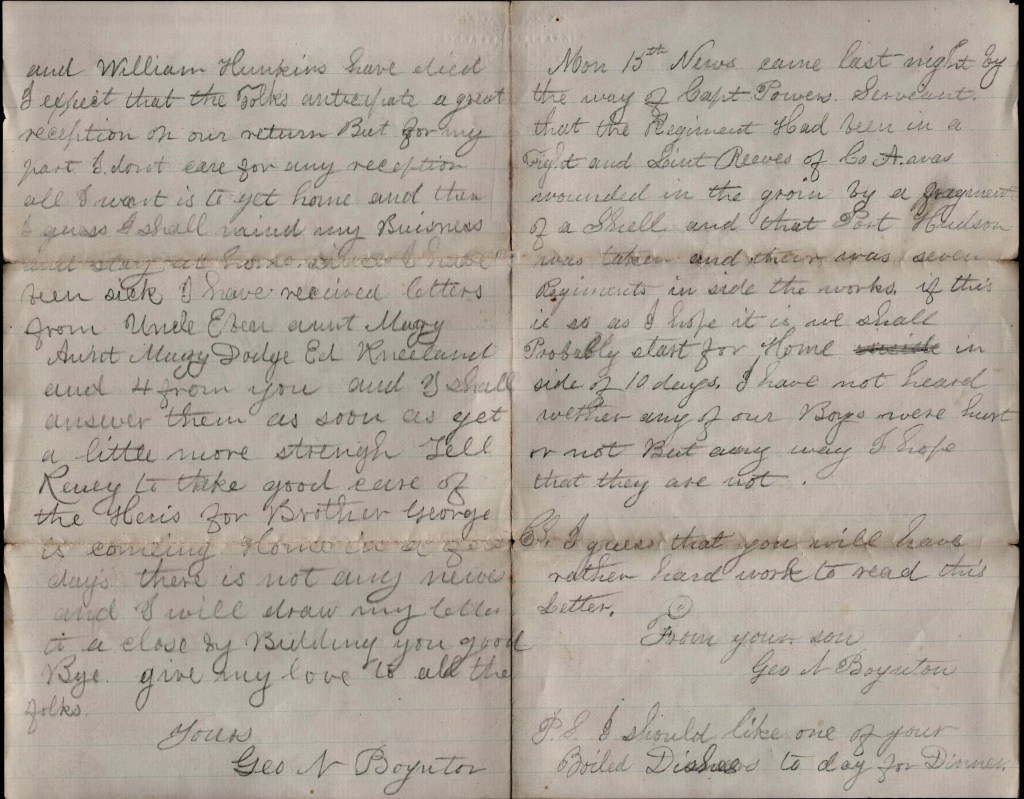 and William Hunkins have died
I expect that the Folks anticipate a great
reception on our return But for my
part I dont care for any reception
all I want is to get home and then
I guess I shall mind my Buisness
and stay at home. since I have
been sick I have received letters
from Uncle Eben aunt Mugy
Aunt Mugy Dodge Ed Kneeland
and 4 from you and I shall
answer them as soon as get
a little more strengh Tell
to take good care of
the Hens for Brother George
is comeing Home in a few
days there is not any news
and I will draw my letter
to a close by Bidding you good
Bye. give my love to all the
folks.
Yours
Geo N Boynton
Mon 15th News came last night by
the way of Capt Powers. Servant.
that the Regiment Had been in a
Fight and Leiut Reeves of Co A. was
wounded in the groin by a fragment
of a Shell and that Port Hudson
was taken and their was seven
Regiments in side the works. if this
is so as I hope it is we shall
Probably start for Home in
side of 10 days. I have not heard
wether any of our Boys were hurt
or not But any way I hope
that they are not.
I guess that you will have
rather hard work to read this
Letter.
From your son
Geo N Boynton
P.S. I should like one of your
Boiled to day for Dinner